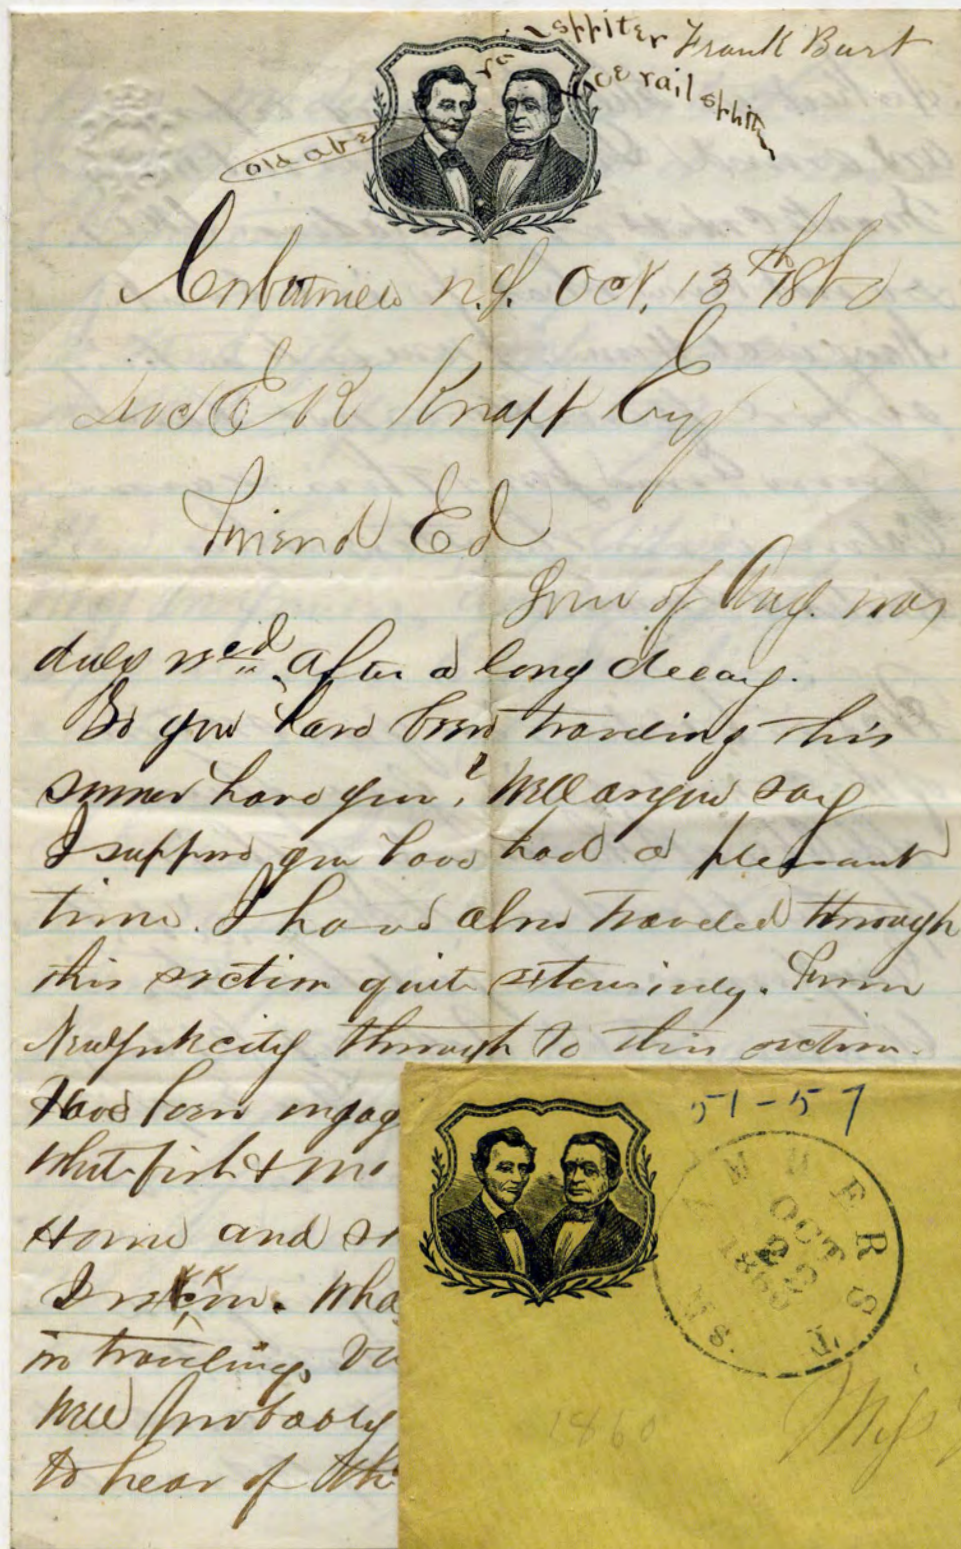 rail splitter Frank Burt
vice rail splitter
old abe
N.Y. Oct. 13th 1860
E R Knapp Esq
Friend Ed
Yours of Aug. was
duly recd after a long delay.
So you have been traveling this
summer have you? Well
I suppose you have had a pleasant
time. I have also traveled through
this section quite extensively. From
New York city through to this section.
Have been engag
white fish & m
Home and s
Wha
in traveling.
Well probably
to hear of th
51-57
AMHERST
OCT
22
1860
MS.
1860
Miss